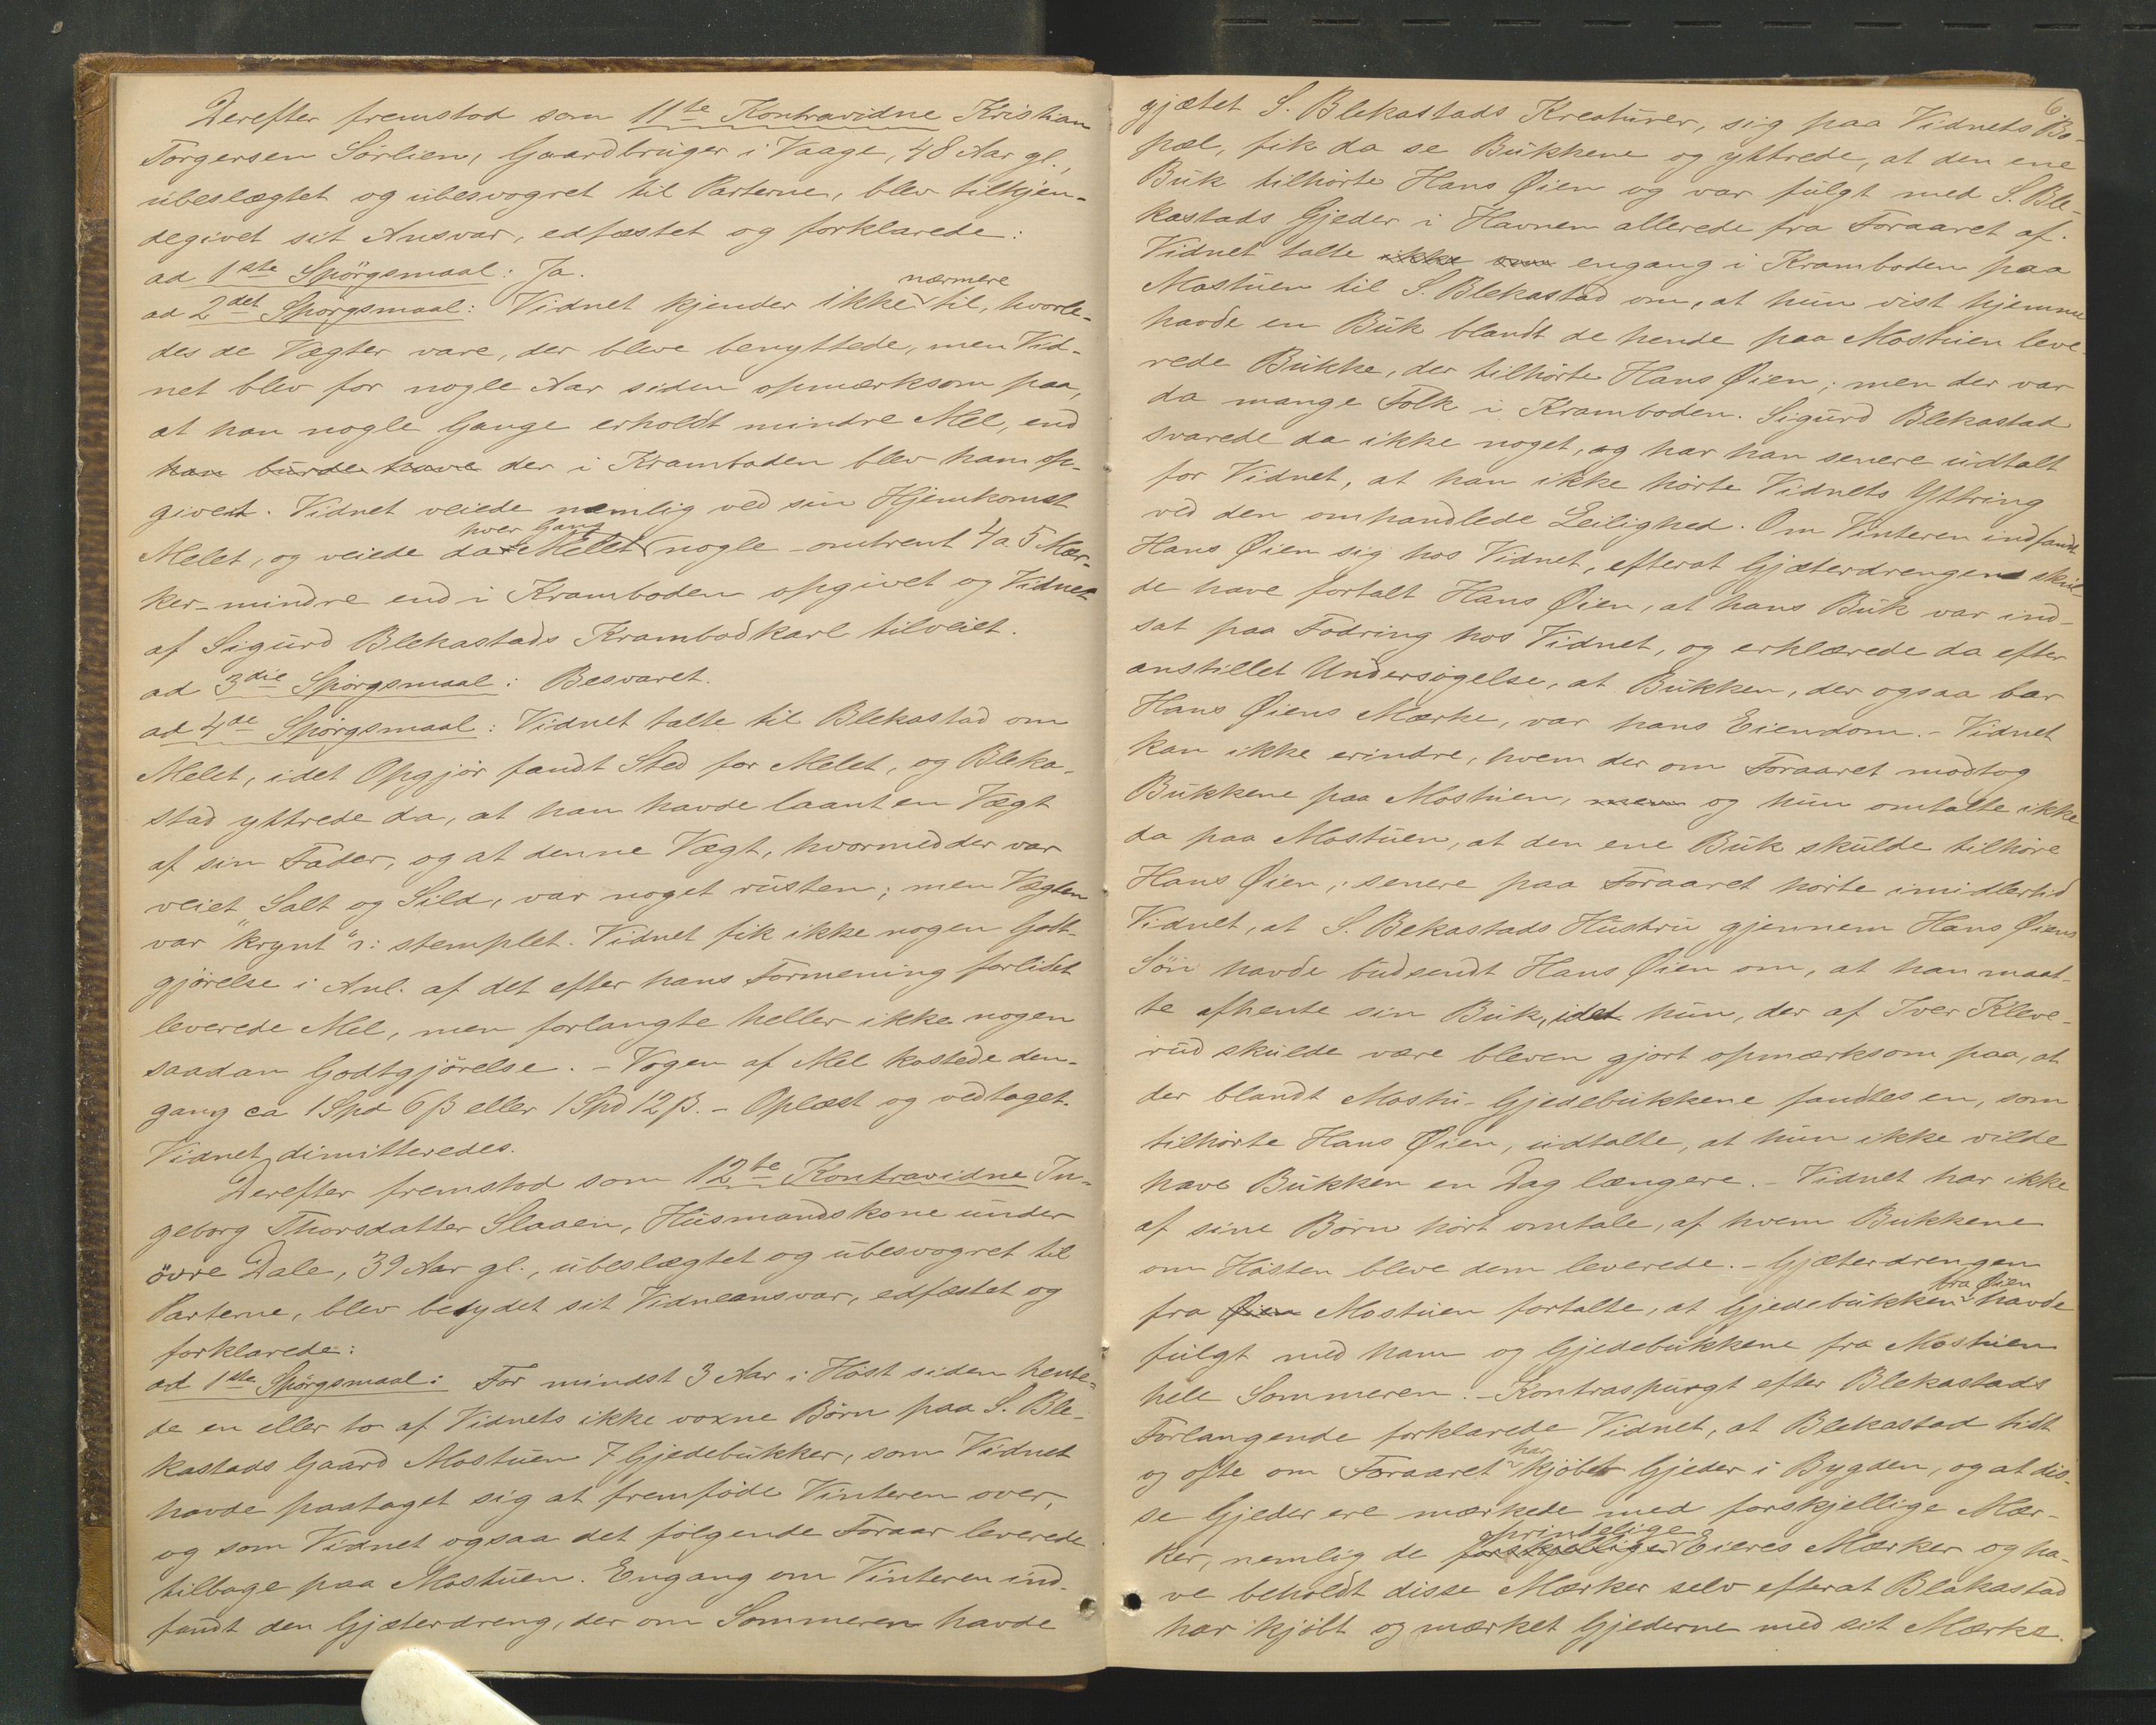 Derefter fremstod som 11te Kontravidne Kristian
Torgersen Sörlien, Gaardbruger i Vaage, 48 Aar gl.,
ubeslægtet og ubesvogret til Parterne, blev tilkjen-
degivet sit Ansvar, edfæstet og forklarede:
ad 1ste Spörgsmaal: Ja.
nærmere
ad 2det Spörgsmaal: Vidnet kjender ikke til, hvorle-
des de Vægter vare, der bleve benyttede, men Vid-
net blev for nogle Aar siden opmærksom paa,
at han nogle Gange erholdt mindre Mel, end
han burde have der i Kramboden blev ham op-
givet. Vidnet veiede nemlig ved sin Hjemkomst
hver Gang
Melet, og veiede da Melet nogle - omtrent 4 a 5 Mær-
ker - mindre end i Kramboden opgivet og Vidnet
af Sigurd Blekastads Krambodkarl tilveiet.
ad 3die Spörgsmaal: Besvaret.
ad 4de Spörgsmaal: Vidnet talte til Blekastad om
Melet, idet Opgjör fandt Sted for Melet, og Bleka-
stad yttrede da, at han havde laant en Vægt
af sin Fader, og at denne Vægt, hvormed der var
veiet Salt og Sild, var noget rusten; men Vægten
var "krynt" ɔ: stemplet. Vidnet fik ikke nogen Godt-
gjörelse i Anl. af det efter hans Formening forlidet
leverede Mel, men forlangte heller ikke nogen
saadan Godtgjörelse. - Vogen af Mel kostede den-
gang ca 1 Spd 6 β eller 1 Spd 12 β. - Oplæst og vedtaget.
Vidnet dimitteredes.
Derefter fremstod som 12te Kontravidne In-
geborg Thorsdatter Slaaen, Husmandskone under
övre Dale, 39 Aar gl., ubeslægtet og ubesvogret til
Parterne, blev betydet sit Vidneansvar, edfæstet og
forklarede:
ad 1ste Spörgsmaal: For mindst 3 Aar i Höst siden hente-
de en eller to af Vidnets ikke voxne Börn paa S. Ble-
kastads Gaard Mostuen 7 Gjedebukker, som Vidnet
havde paataget sig at fremföde Vinteren over,
og som Vidnet ogsaa det fölgende Foraar leverede
tilbage paa Mostuen. Engang om Vinteren ind-
fandt den Gjæterdreng, der om Sommeren havde
6
gjætet S. Blekastads Kreaturer, sig paa Vidnets Bo-
pæl, fik da se Bukkene og yttrede, at den ene
Buk tilhörte Hans Øien og var fulgt med S. Ble-
kastads Gjeder i Havnen allerede fra Foraaret af.
Vidnet talte ikke engang i Kramboden paa
Mostuen til S. Blekastad om, at hun vist hjemme
havde en Buk blandt de hende paa Mostuen leve-
rede Bukke, der tilhörte Hans Øien; men der var
da mange Folk i Kramboden. Sigurd Blekastad
svarede da ikke noget, og har han senere udtalt
for Vidnet, at han ikke hörte Vidnets Yttring
ved den omhandlede Leilighed. Om Vinteren indfandt
Hans Øien sig hos Vidnet, efterat Gjæterdrengen skul-
de have fortalt Hans Øien, at hans Buk var ind-
sat paa Fodring hos Vidnet, og erklærede da efter
anstillet Undersögelse, at Bukken, der ogsaa bar
Hans Øiens Mærke, var hans Eiendom. - Vidnet
kan ikke erindre, hvem der om Foraaret modtog
Bukkene paa Mostuen, men og hun omtalte ikke
da paa Mostuen, at den ene Buk skulde tilhöre
Hans Øien; senere paa Foraaret hörte imidlertid
Vidnet, at S. Bekastads Hustru gjennem Hans Øiens
Sön havde budsendt Hans Øien om, at han maat-
te afhente sin Buk, idet hun, der af Iver Kleve-
rud skulde være bleven gjort opmærksom paa, at
der blandt Mostu-Gjedebukkene fandtes en, som
tilhörte Hans Øien, udtalte, at hun ikke vilde
have Bukken en Dag længere. - Vidnet har ikke
af sine Börn hört omtale, af hvem Bukkene
om Hösten bleve dem leverede. - Gjæterdrengen
fra Øien
fra Øien Mostuen fortalte, at Gjedebukken havde
fulgt med ham og Gjedebukkene fra Mostuen
hele Sommeren. - Kontraspurgt efter Blekastads
Forlangende forklarede Vidnet, at Blekastad tidt
har
og ofte om Foraaret kjöbet Gjeder i Bygden, og at dis-
se Gjeder ere mærkede med forskjellige Mær-
oprindelige
ker, nemlig de forskjellige Eieres Mærker og ha-
ve beholdt disse Mærker selv efterat Blakastad
har kjöbt og mærket Gjederne med sit Mærke.